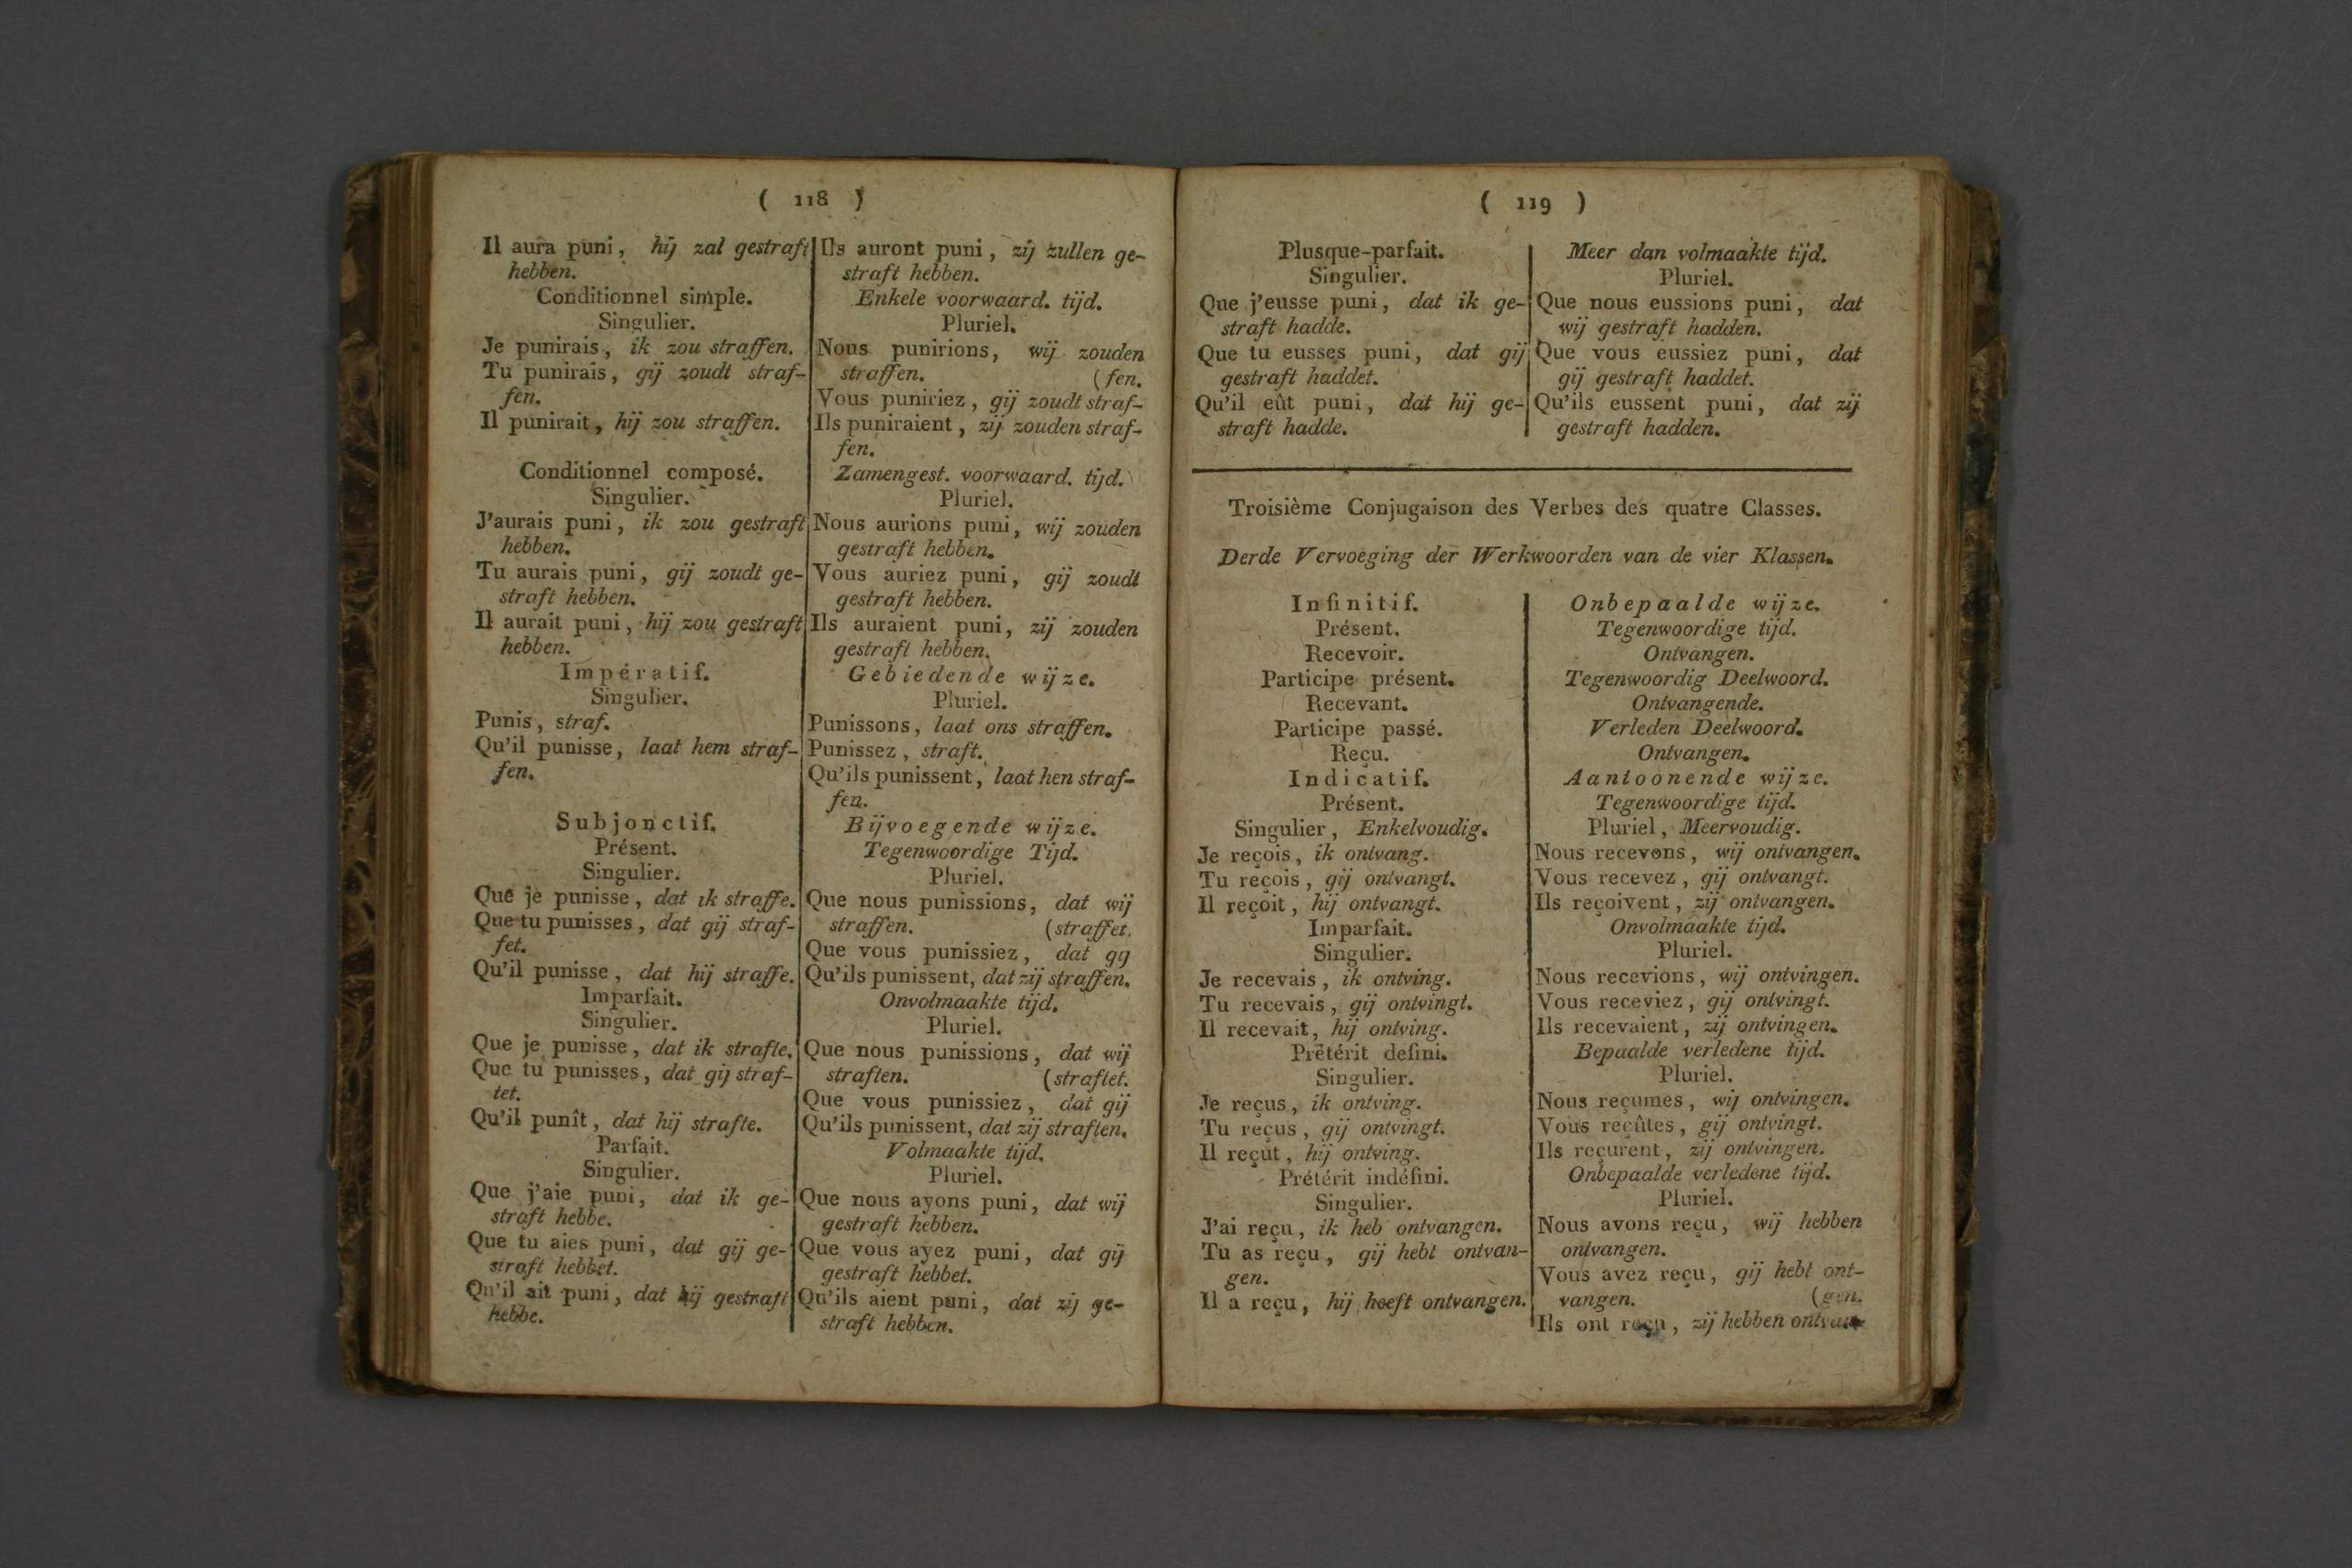 ( 118 )
Il aura puni, hij zal gestraft
hebben.
Conditionnel simple.
Singulier.
Je punirais, ik zou straffen.
Tu punirais, gij zoudt straf-
fen.
Il punirait, hij zou straffen.
Conditionnel composé.
Singulier.
J'aurais puni, ik zou gestraft
hebben.
Tu aurais puni, gij zoudt ge-
straft hebben.
Il aurait puni, hij zou gestraft
hebben.
Impératif.
Singulier.
Punis, straf.
Qu'il punisse, laat hem straf-
fen.
Subjonctif.
Présent.
Singulier.
Que je punisse, dat ik straffe.
Que tu punisses, dat gij straf-
fet.
Qu'il punisse, dat hij straffe.
Imparfait.
Singulier.
Que je punisse, dat ik strafte.
Que tu punisses, dat gij straf-
tet.
Qu'il punît, dat hij strafte.
Parfait.
Singulier.
Que j'aie puni, dat ik ge-
straft hebbe.
Que tu aies puni, dat gij ge-
straft hebbet.
Qu'il ait puni, dat hij gestraft
hebbe.
Ils auront puni, zij zullen ge-
straft hebben.
Enkele voorwaard. tijd.
Pluriel.
Nous punirions, wij zouden
straffen. (fen.
Vous puniriez, gij zoudt straf-
Ils puniraient, zij zouden straf-
fen.
Zamengest. voorwaard. tijd.
Pluriel.
Nous aurions puni, wij zouden
gestraft hebben.
Vous auriez puni, gij zoudt
gestraft hebben.
Ils auraient puni, zij zouden
gestraft hebben.
Gebiedende wijze.
Pluriel.
Punissons, laat ons straffen.
Punissez, straft.
Qu'ils punissent, laat hen straf-
fen.
Bijvoegende wijze.
Tegenwoordige Tijd.
Pluriel.
Que nous punissions, dat wij
straffen. (straffet.
Que vous punissiez, dat gij
Qu'ils punissent, dat zij straffen.
Onvolmaakte tijd.
Pluriel.
Que nous punissions, dat wij
straften. (straftet.
Que vous punissiez, dat gij
Qu'ils punissent, dat zij straften.
Volmaakte tijd.
Pluriel.
Que nous ayons puni, dat wij
gestraft hebben.
Que vous ayez puni, dat gij
gestraft hebbet.
Qu'ils aient puni, dat zij ge-
straft hebben.
( 119 )
Plusque-parfait.
Singulier.
Que j'eusse puni, dat ik ge-
straft hadde.
Que tu eusses puni, dat gij
gestraft haddet.
Qu'il eût puni, dat hij ge-
straft hadde.
Meer dan volmaakte tijd.
Pluriel.
Que nous eussions puni, dat
wij gestraft hadden.
Que vous eussiez puni, dat
gij gestraft haddet.
Qu'ils eussent puni, dat zij
gestraft hadden.
Troisième Conjugaison des Verbes des quatre Classes.
Derde Vervoeging der Werkwoorden van de vier Klassen.
Infinitif.
Présent.
Recevoir.
Participe présent.
Recevant.
Participe passé.
Reçu.
Indicatif.
Présent.
Singulier, Enkelvoudig.
Je reçois, ik ontvang.
Tu reçois, gij ontvangt.
Il reçoit, hij ontvangt.
Imparfait.
Singulier.
Je recevais, ik ontving.
Tu recevais, gij ontvingt.
Il recevait, hij ontving.
Prétérit defini.
Singulier.
Je reçus, ik ontving.
Tu reçus, gij ontvingt.
Il reçut, hij ontving.
Prétérit indéfini.
Singulier.
J'ai reçu, ik heb ontvangen.
Tu as reçu, gij hebt ontvan-
gen.
Il a reçu, hij heeft ontvangen.
Onbepaalde wijze.
Tegenwoordige tijd.
Ontvangen.
Tegenwoordig Deelwoord.
Ontvangende.
Verleden Deelwoord.
Ontvangen.
Aantoonende wijze.
Tegenwoordige tijd.
Pluriel, Meervoudig.
Nous recevons, wij ontvangen.
Vous recevez, gij ontvangt.
Ils reçoivent, zij ontvangen.
Onvolmaakte tijd.
Pluriel.
Nous recevions, wij ontvingen.
Vous receviez, gij ontvingt.
Ils recevaient, zij ontvingen.
Bepaalde verledene tijd.
Pluriel.
Nous reçumes, wij ontvingen.
Vous reçûtes, gij ontvingt.
Ils reçurent, zij ontvingen.
Onbepaalde verledene tijd.
Pluriel.
Nous avons reçu, wij hebben
ontvangen.
Vous avez reçu, gij hebt ont-
vangen. (gen.
Ils ont reçu, zij hebben ontvan-